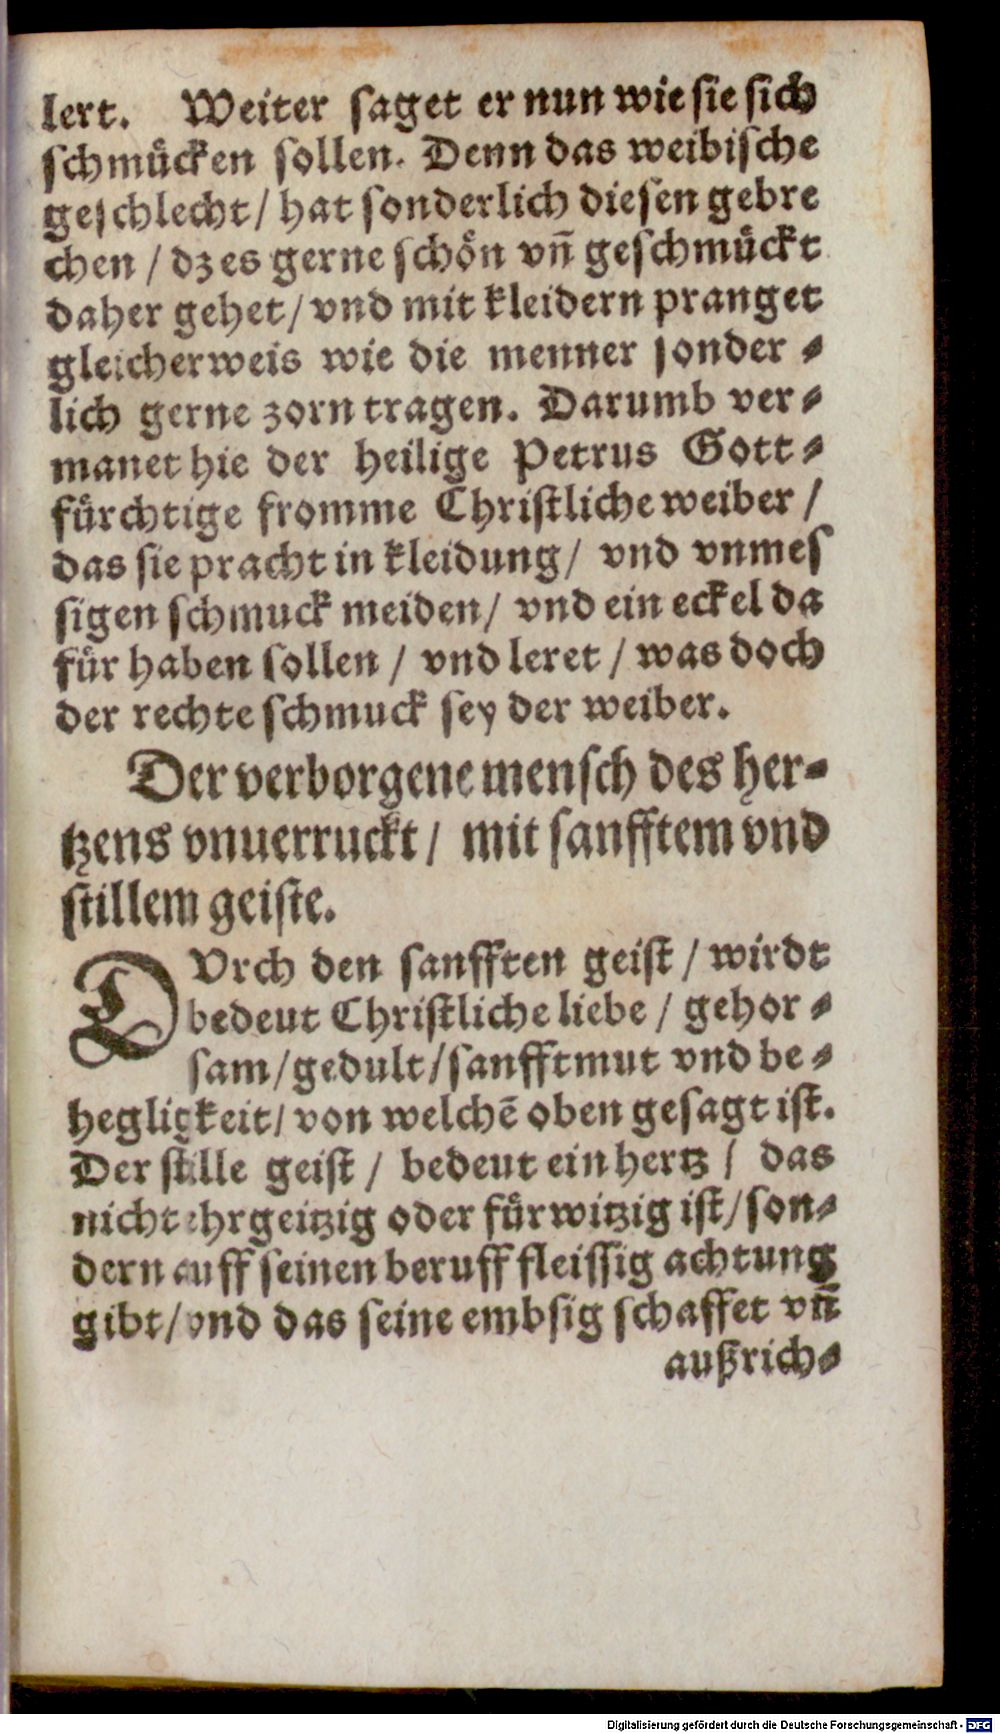 lert. Weiter saget er nun wie sie sich
schmuͤcken sollen. Denn das weibische
geschlecht / hat sonderlich diesen gebre
chen / dz es gerne schoͤn vñ geschmuͤckt
daher gehet / vnd mit kleidern pranget
gleicherweis wie die menner sonder⸗
lich gerne zorn tragen. Darumb ver⸗
manet hie der heilige Petrus Gott⸗
fuͤrchtige fromme Christliche weiber /
das sie pracht in kleidung / vnd vnmes
sigen schmuck meiden / vnd ein eckel da
fuͤr haben sollen / vnd leret / was doch
der rechte schmuck sey der weiber.
Der verborgene mensch des her⸗
tzens vnuerruckt / mit sanfftem vnd
stillem geiste.
DVrch den sanfften geist / wirdt
bedeut Christliche liebe / gehor⸗
sam / gedult / sanfftmut vnd be⸗
hegligkeit / von welchē oben gesagt ist.
Der stille geist / bedeut ein hertz / das
nicht ehrgeitzig oder fuͤrwitzig ist / son⸗
dern auff seinen beruff fleissig achtung
gibt / vnd das seine embsig schaffet vñ
außrich⸗
Digitalisierung gefördert durch die Deutsche Forschungsgemeinschaft - DFG